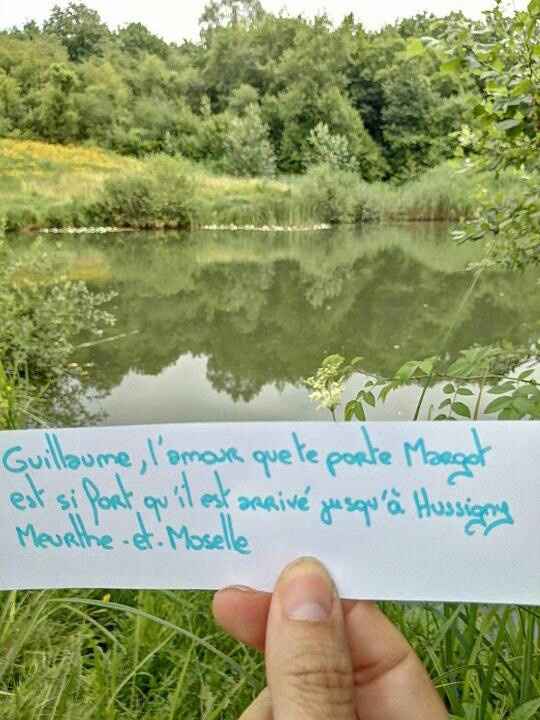 Guillaume, l'amour que te porte Margot
est si fort, qu'il est arrivé jusqu'à Hussigny
Meurthe-et-Moselle